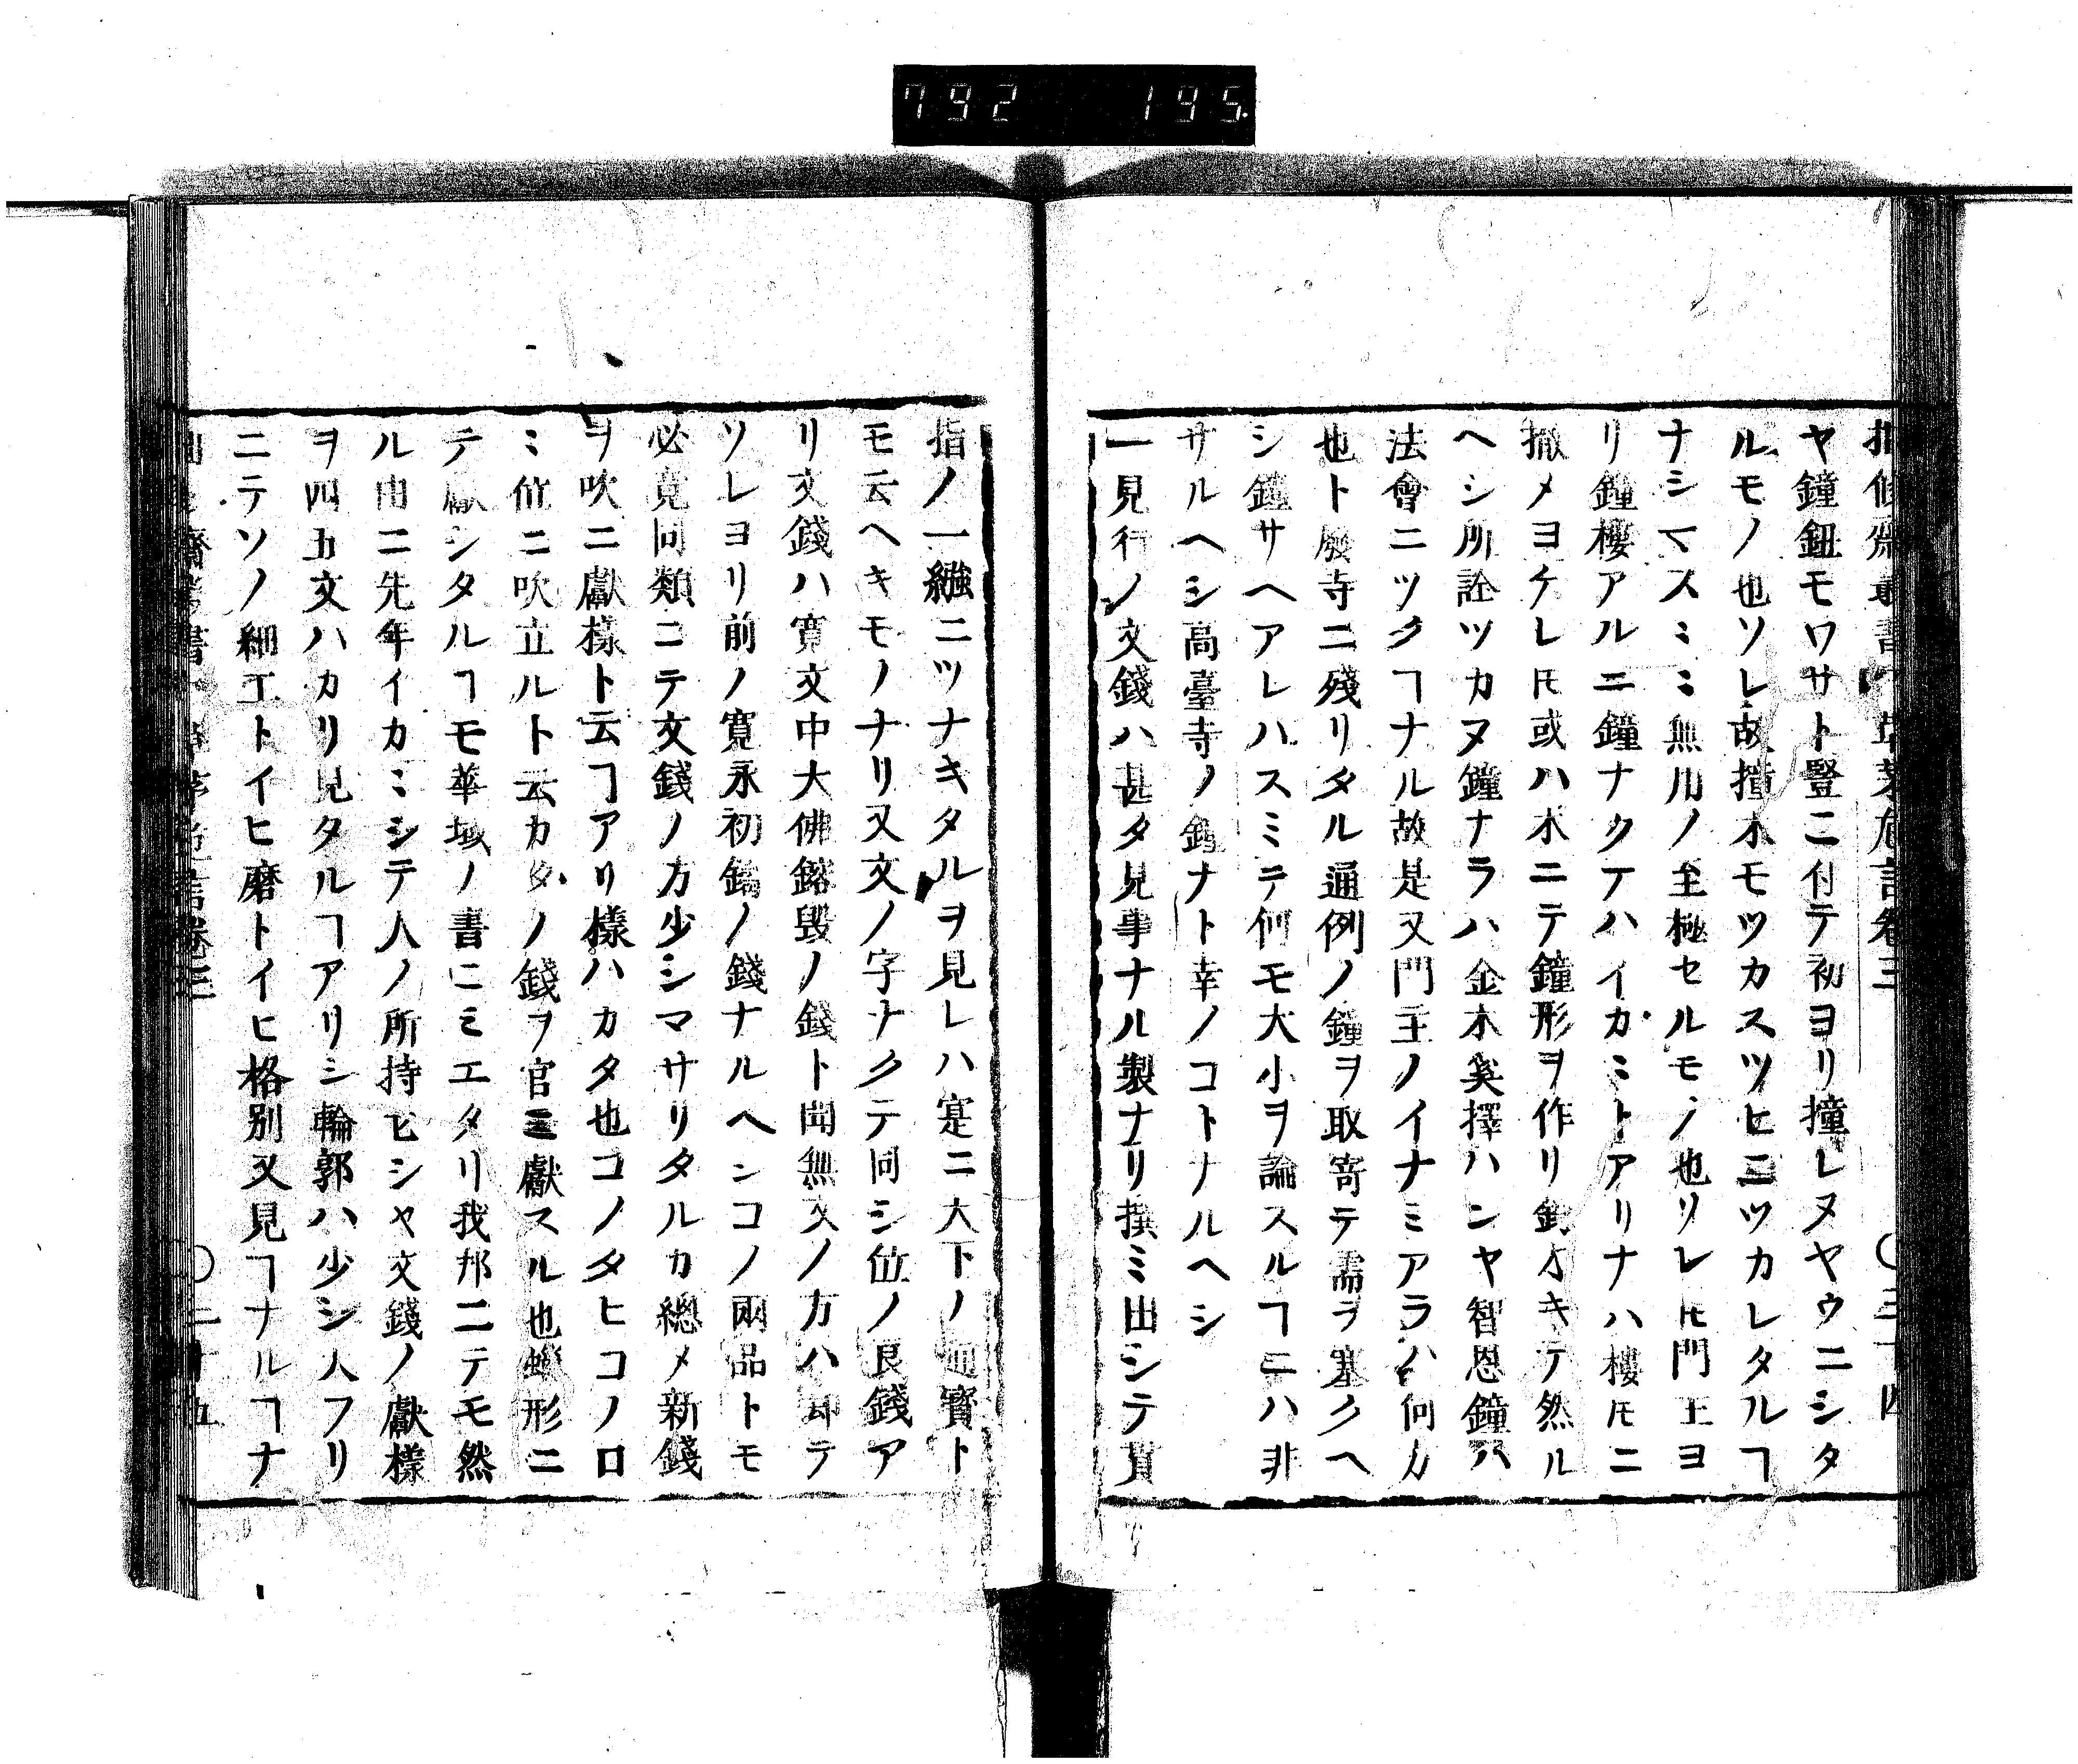 792 195.
ヤ鐘鈕モワサト豎ニ付テ初ヨリ撞レヌヤウニシタ
ルモノ也ソレ故撞木モツカスツヒニツカレタルヿ
ナシマスミミ無用ノ至極セルモノ也ソレㇳモ門主ヨ
リ鐘樓アルニ鐘ナクテハイカミトアリナハ樓ㇳモニ
撤メヨケレㇳモ或ハ木ニテ鐘形ヲ作リ釣オキテ然ル
ヘシ所詮ツカヌ鐘ナラハ金木奚擇ハンヤ智恩鐘ハ
法會ニツクヿナル故是又門主ノイナミアラハ何カ
也ト廢寺ニ殘リタル通例ノ鐘ヲ取寄テ需ヲ塞クヘ
シ鐘サヘアレハスミテ何モ大小ヲ論スルヿニハ非
サルヘシ高臺寺ノ鐘ナト幸ノコトナルヘシ
一見行ノ文錢ハ甚タ見事ナル製ナリ撰ミ出シテ貫
指ノ一繦ニツナキタルヲ見レハ寔ニ大下ノ通寳ト
モ云ヘキモノナリ又文ノ字ナクテ同シ位ノ良錢ア
リ文錢ハ寛文中大佛鎔毀ノ錢ト聞無文ノ方ハ却テ
ソレヨリ前ノ寛永初鑄ノ錢ナルヘシコノ兩品トモ
必竟同類ニテ文錢ノ方少シマサリタルカ總メ新錢
ヲ吹ニ獻樣ト云ヿアリ樣ハカタ也コノタヒコノロ
ミ位ニ吹立ルト云カタノ錢ヲ官ミ獻スル也蠟形ニ
テ獻シタルヿモ華域ノ書ニミエタリ我邦ニテモ然
ル由ニ先年イカミシテ人ノ所持セシヤ文錢ノ獻樣
ヲ四五文ハカリ見タルヿアリシ輪郭ハ少シ人フリ
ニテソノ細工トイヒ磨トイヒ格別又見ヿナルヿナ